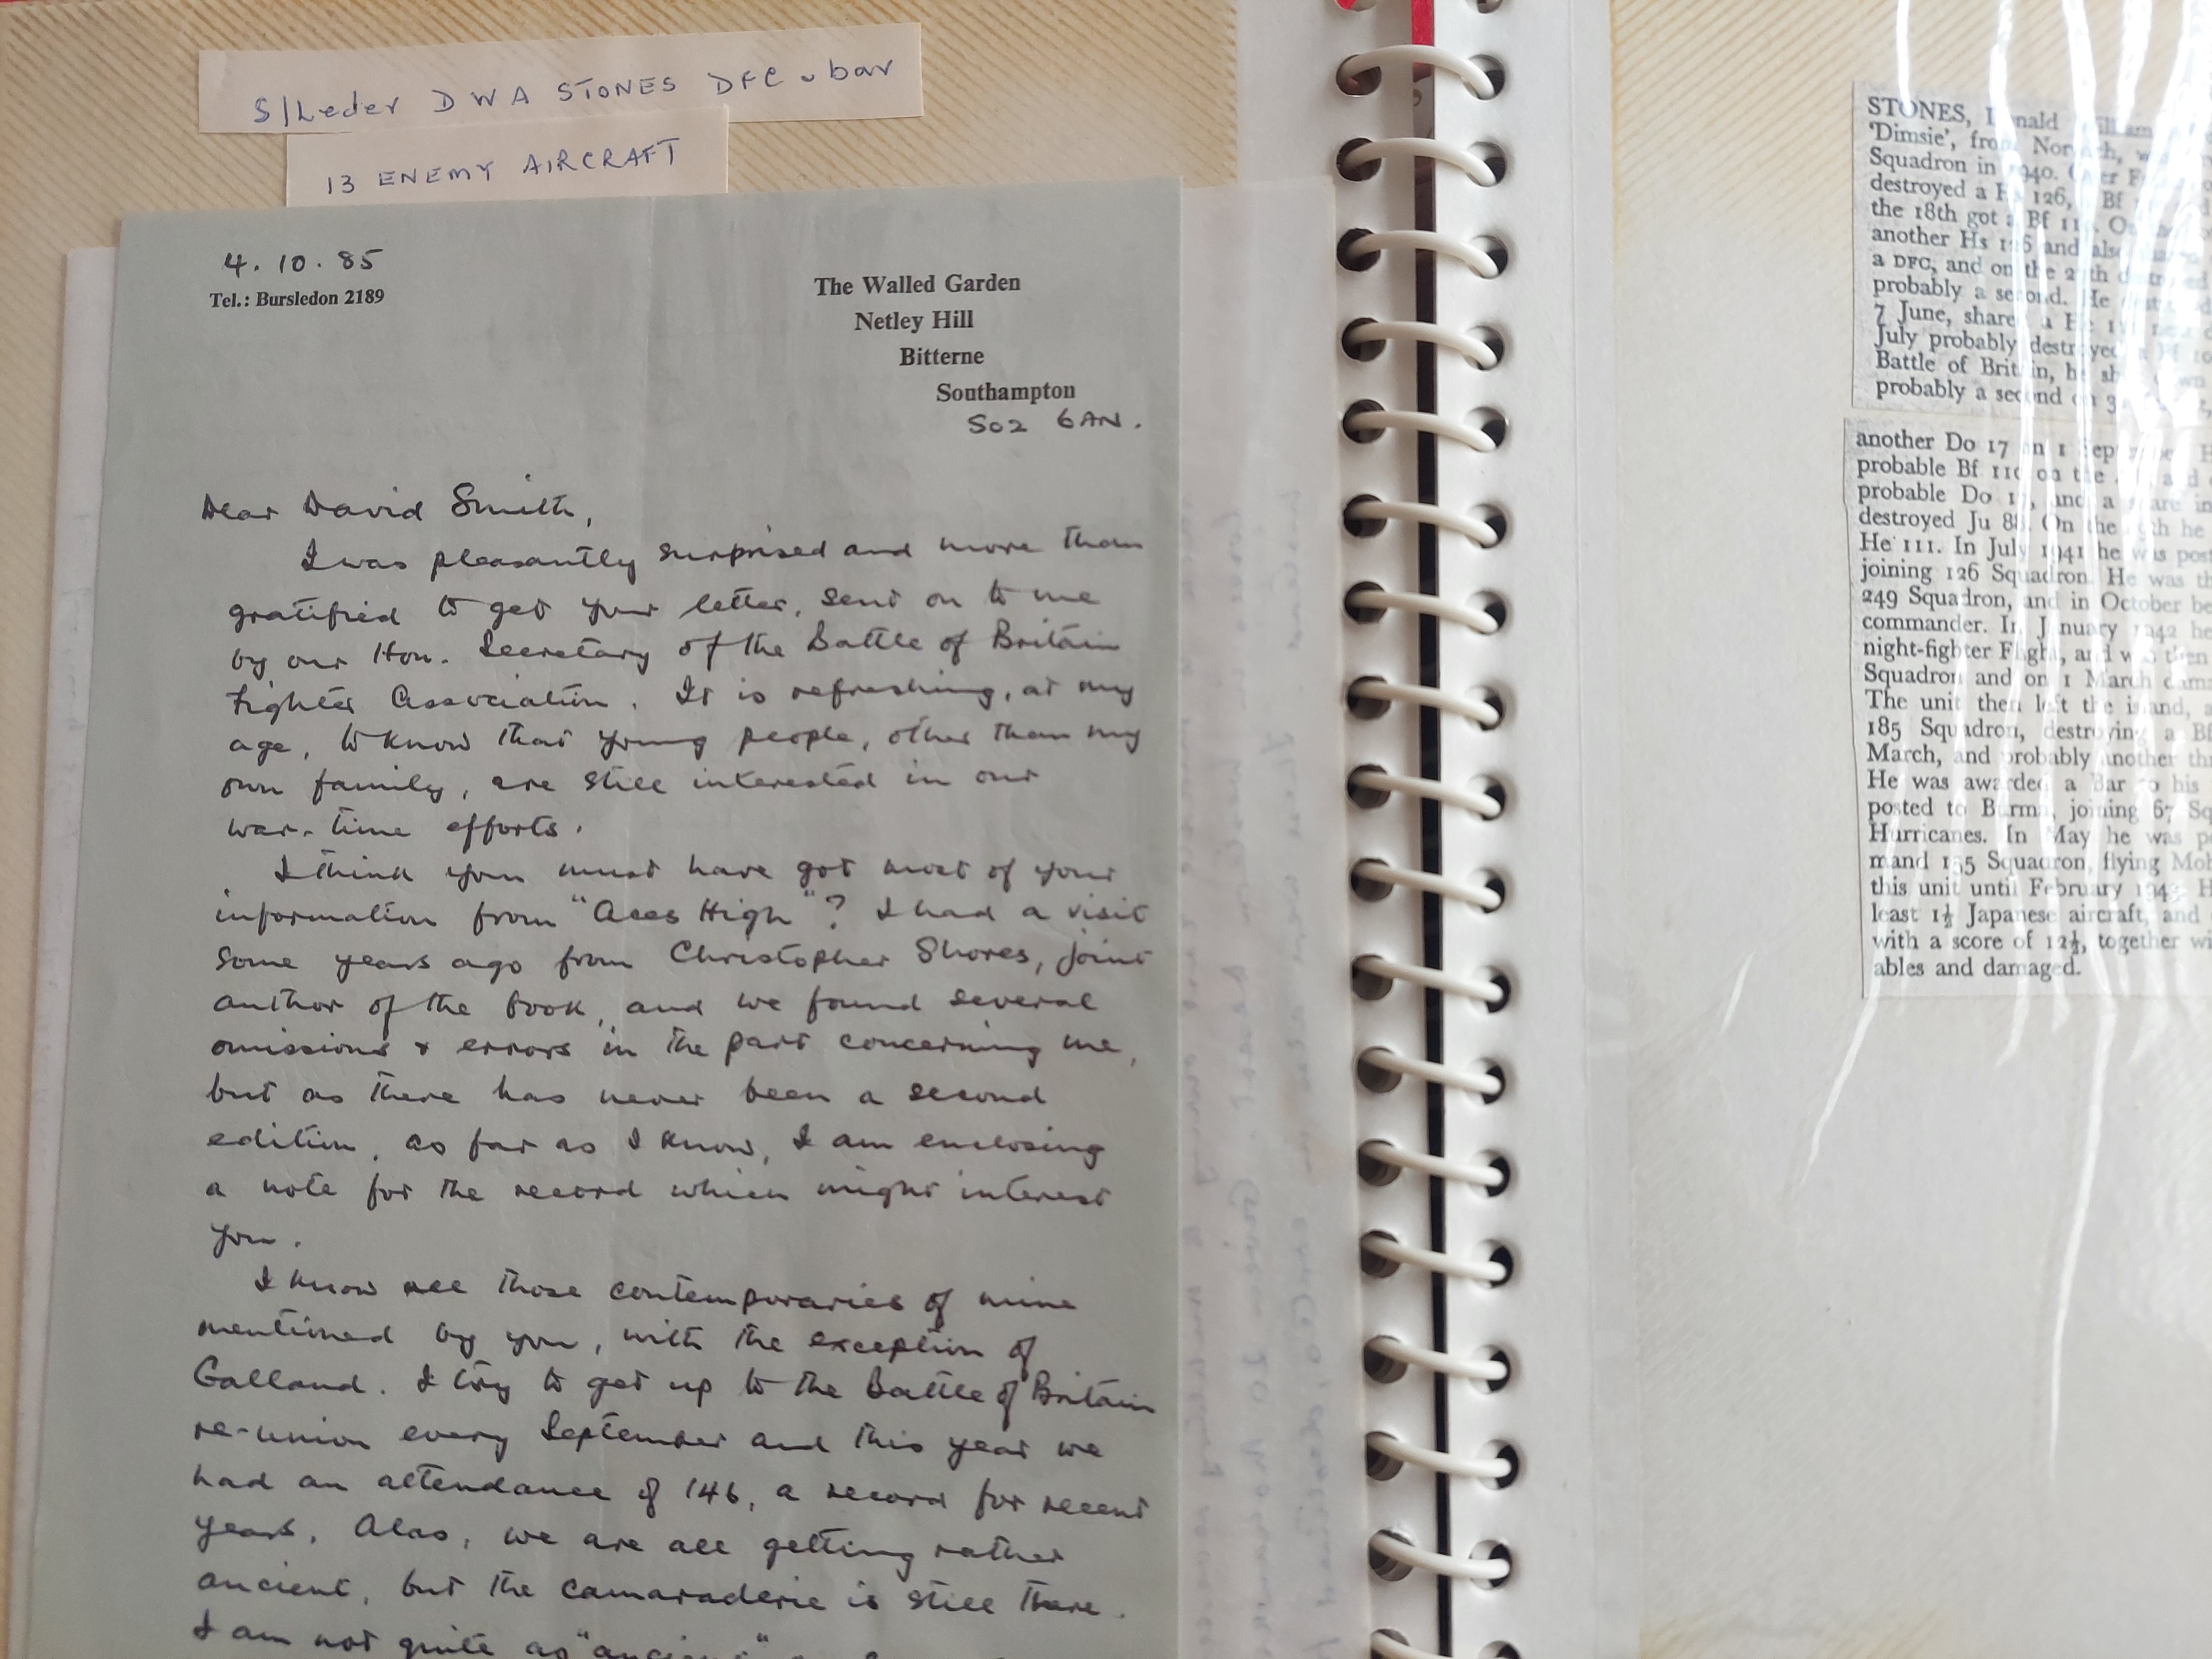 S/Leder D W A STONES DFC & bar
13 ENEMY AIRCRAFT
4. 10. 85
Tel.: Bursledon 2189
The Walled Garden
Netley Hill
Bitterne
Southampton
SO2 6AN.
Dear David Smith,
I was pleasantly surprised and more than
gratified to get your letter, sent on to me
by our Hon. Secretary of the Battle of Britain
Fighter Association. It is refreshing, at my
age, to know that young people, other than my
own family, are still interested in our
war-time efforts.
I think you must have got most of your
information from "Aces High"? I had a visit
some years ago from Christopher Shores, joint
author of the book, and we found several
omissions & errors in the part concerning me,
but as there has never been a second
edition, as far as I know, I am enclosing
a note for the record which might interest
you.
I know all those contemporaries of mine
mentioned by you, with the exception of
Galland. I try to get up to the Battle of Britain
re-union every September and this year we
had an attendance of 146, a record for recent
years. Alas, we are all getting rather
ancient, but the camaraderie is still there.
I am not quite as "ancient"
STONES,
'Dimsie', from
Squadron in
destroyed a 126, Bf
the 18th got a Bf
another Hs and
a DFC, and on the
probably a second. He
7 June, shared a
July probably destroyed a
Battle of Britain, he
probably a second
another Do 17 on 1
probable Bf 110 on the
probable Do and a share in
destroyed Ju 88. On the he
He 111. In July 1941 he was
joining 126 Squadron. He was
249 Squadron, and in October
commander. In January 1942 he
night-fighter Flight, and was then
Squadron and on 1 March
The unit then left the island,
185 Squadron, destroying a
March, and probably another
He was awarded a Bar to his
posted to Burma, joining 67
Hurricanes. In May he was
mand 155 Squadron, flying
this unit until February 1943.
least 1½ Japanese aircraft, and
with a score of 12½, together
ables and damaged.